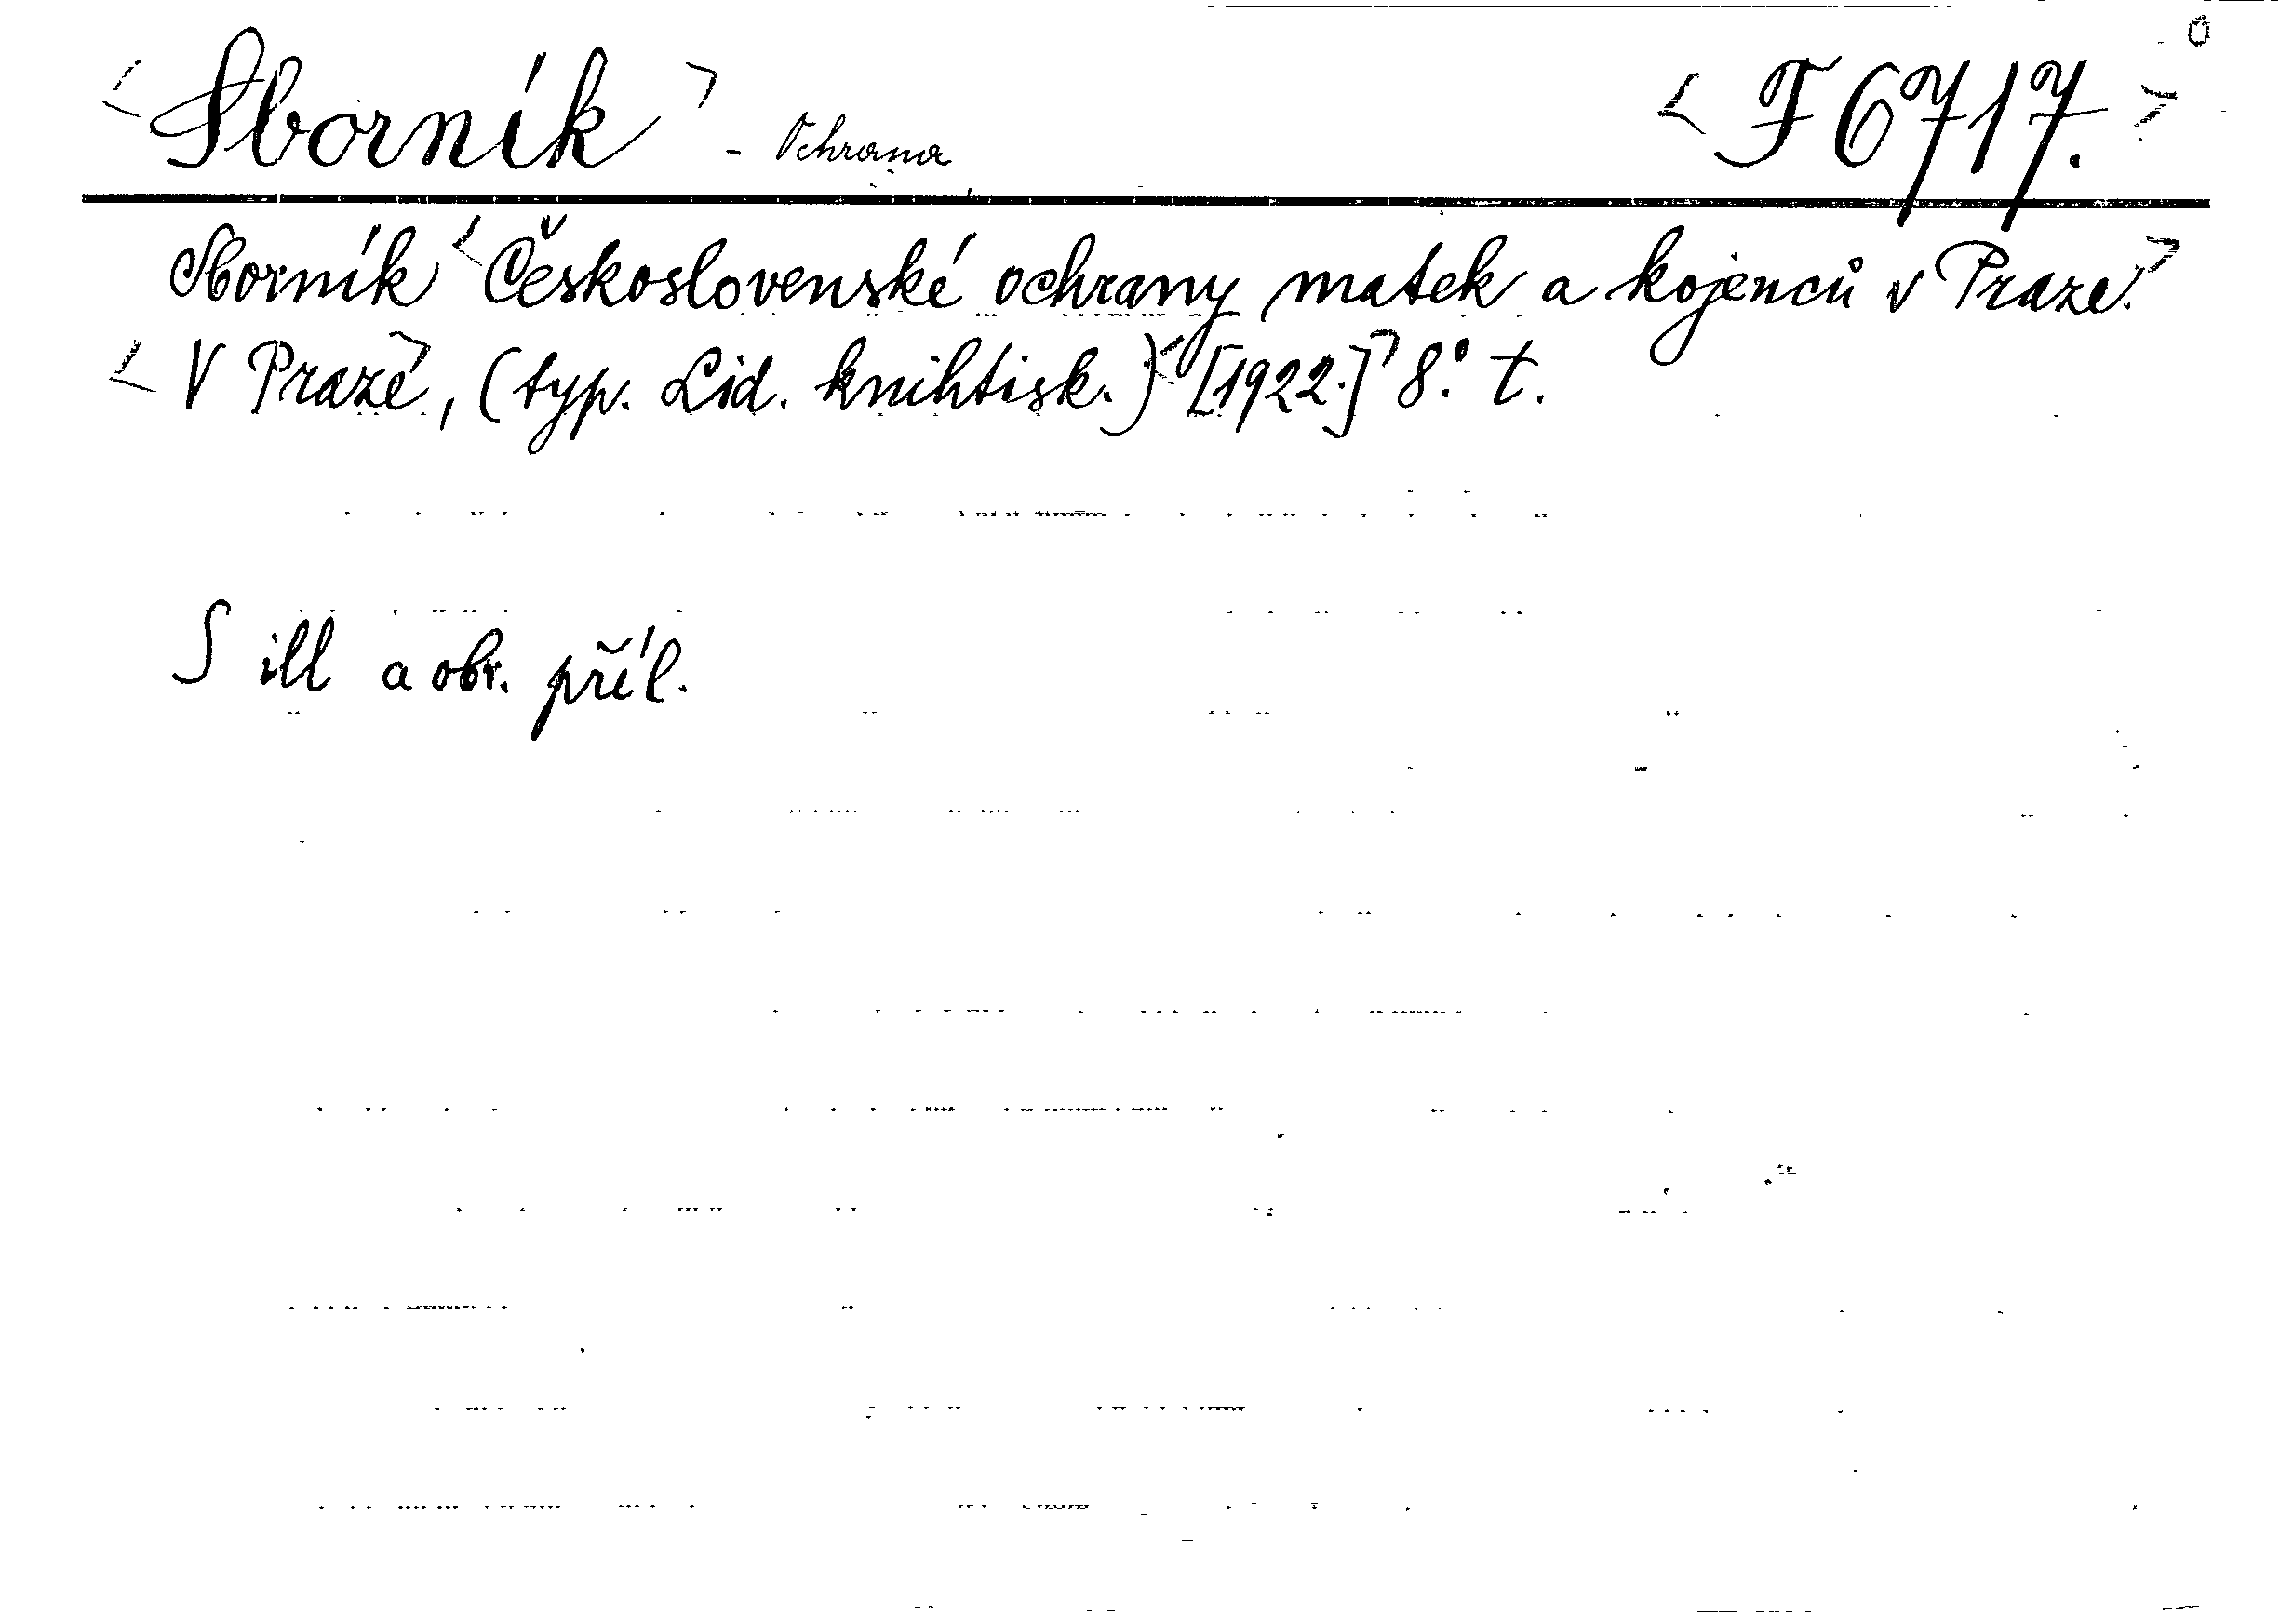 <Sborník> - Ochrana <F 6717.>
Sborník <Československé ochrany matek a kojenců v Praze.>
<V Praze>, (typ. Lid. knihtisk.) <[1922.]> 8.° t.
S ill a obr. příl.